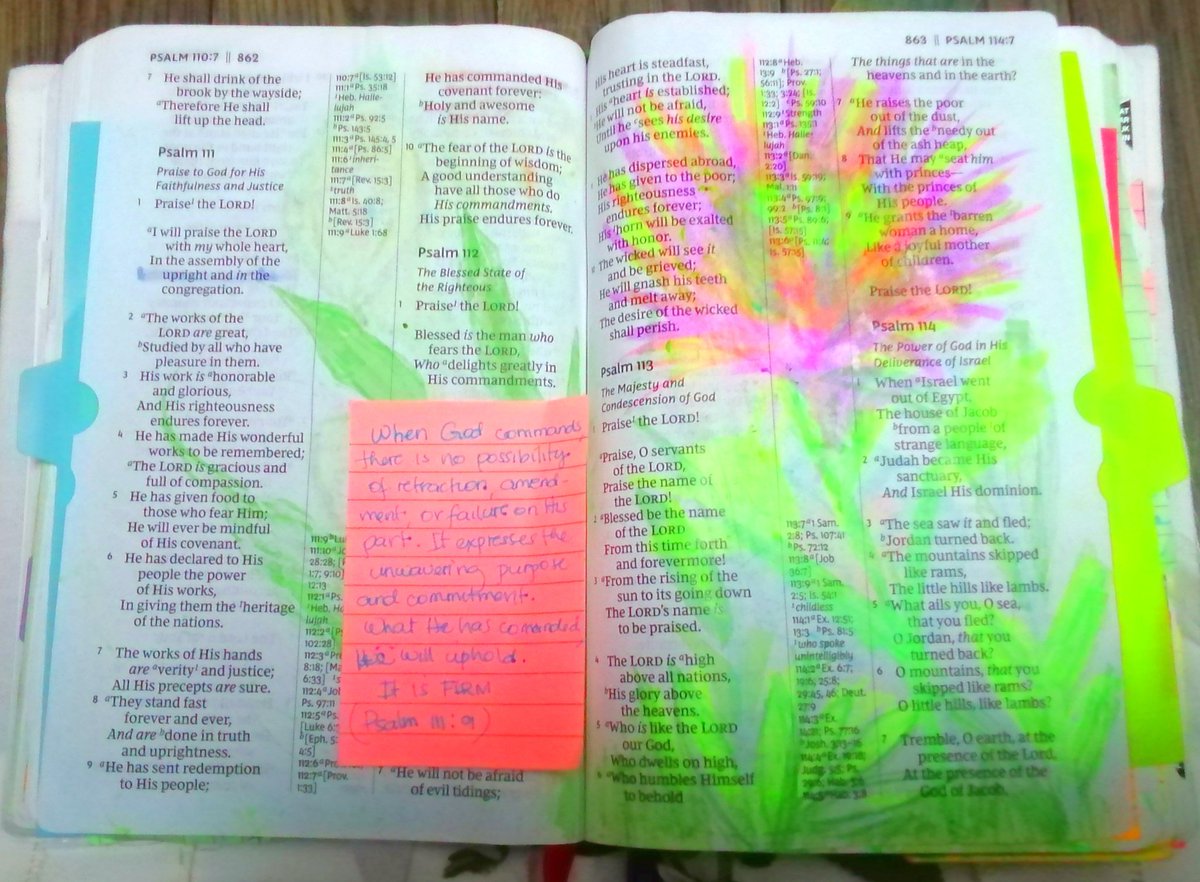 PSALM 110:7 || 862
7 He shall drink of the
brook by the wayside;
aTherefore He shall
lift up the head.
Psalm 111
Praise to God for His
Faithfulness and Justice
1 Praise1 the LORD!
aI will praise the LORD
with my whole heart,
In the assembly of the
upright and in the
congregation.
2 aThe works of the
LORD are great,
bStudied by all who have
pleasure in them.
3 His work is ahonorable
and glorious,
And His righteousness
endures forever.
4 He has made His wonderful
works to be remembered;
aThe LORD is gracious and
full of compassion.
5 He has given food to
those who fear Him;
He will ever be mindful
of His covenant.
6 He has declared to His
people the power
of His works,
In giving them the 1heritage
of the nations.
7 The works of His hands
are averity1 and justice;
All His precepts are sure.
8 aThey stand fast
forever and ever,
And are bdone in truth
and uprightness.
9 aHe has sent redemption
to His people;
110:7 a[Is. 53:12]
111:1 aPs. 35:18
1Heb. Halle-
lujah
111:2 aPs. 92:5
bPs. 143:5
111:3 aPs. 145:4, 5
111:4 a[Ps. 86:5]
111:6 1inheri-
tance
111:7 a[Rev. 15:3]
1truth
111:8 aIs. 40:8;
Matt. 5:18
b[Rev. 15:3]
111:9 aLuke 1:68
He has commanded His
covenant forever:
bHoly and awesome
is His name.
10 aThe fear of the LORD is the
beginning of wisdom;
A good understanding
have all those who do
His commandments.
His praise endures forever.
Psalm 112
The Blessed State of
the Righteous
1 Praise1 the LORD!
Blessed is the man who
fears the LORD,
Who adelights greatly in
His commandments.
When God commands,
there is no possibility
of retraction, amend-
ment, or failure on His
part. It expresses the
unwavering purpose
and commitment.
What He has comanded
He will uphold.
It is FIRM
(Psalm 111:9)
7 aHe will not be afraid
of evil tidings;
863 || PSALM 114:7
His heart is steadfast,
trusting in the LORD.
8 His aheart is established;
bHe will not be afraid,
Until he csees his desire
upon his enemies.
He has dispersed abroad,
He has given to the poor;
His righteousness
endures forever;
His 1horn will be exalted
with honor.
The wicked will see it
and be grieved;
He will gnash his teeth
and melt away;
The desire of the wicked
shall perish.
Psalm 113
The Majesty and
Condescension of God
1 Praise1 the LORD!
aPraise, O servants
of the LORD,
Praise the name of
the LORD!
2 aBlessed be the name
of the LORD
From this time forth
and forevermore!
3 aFrom the rising of the
sun to its going down
The LORD's name is
to be praised.
4 The LORD is ahigh
above all nations,
bHis glory above
the heavens.
5 aWho is like the LORD
our God,
Who dwells on high,
6 aWho humbles Himself
to behold
113:7 a1 Sam.
2:8; Ps. 107:41
bPs. 72:12
113:8 a[Job
36:7]
113:9 a1 Sam.
2:5; Is. 54:1
1childless
114:1 aEx. 12:51;
13:3 bPs. 81:5
1who spoke
unintelligibly
114:2 aEx. 6:7;
19:6; 25:8;
29:45, 46; Deut.
27:9
The things that are in the
heavens and in the earth?
7 aHe raises the poor
out of the dust,
And lifts the bneedy out
of the ash heap,
8 That He may aseat him
with princes—
With the princes of
His people.
9 aHe grants the 1barren
woman a home,
Like a joyful mother
of children.
Praise the LORD!
Psalm 114
The Power of God in His
Deliverance of Israel
1 When aIsrael went
out of Egypt,
The house of Jacob
bfrom a people 1of
strange language,
2 aJudah became His
sanctuary,
And Israel His dominion.
3 aThe sea saw it and fled;
bJordan turned back.
4 aThe mountains skipped
like rams,
The little hills like lambs.
5 aWhat ails you, O sea,
that you fled?
O Jordan, that you
turned back?
6 O mountains, that you
skipped like rams?
O little hills, like lambs?
7 Tremble, O earth, at the
presence of the Lord,
At the presence of the
God of Jacob,